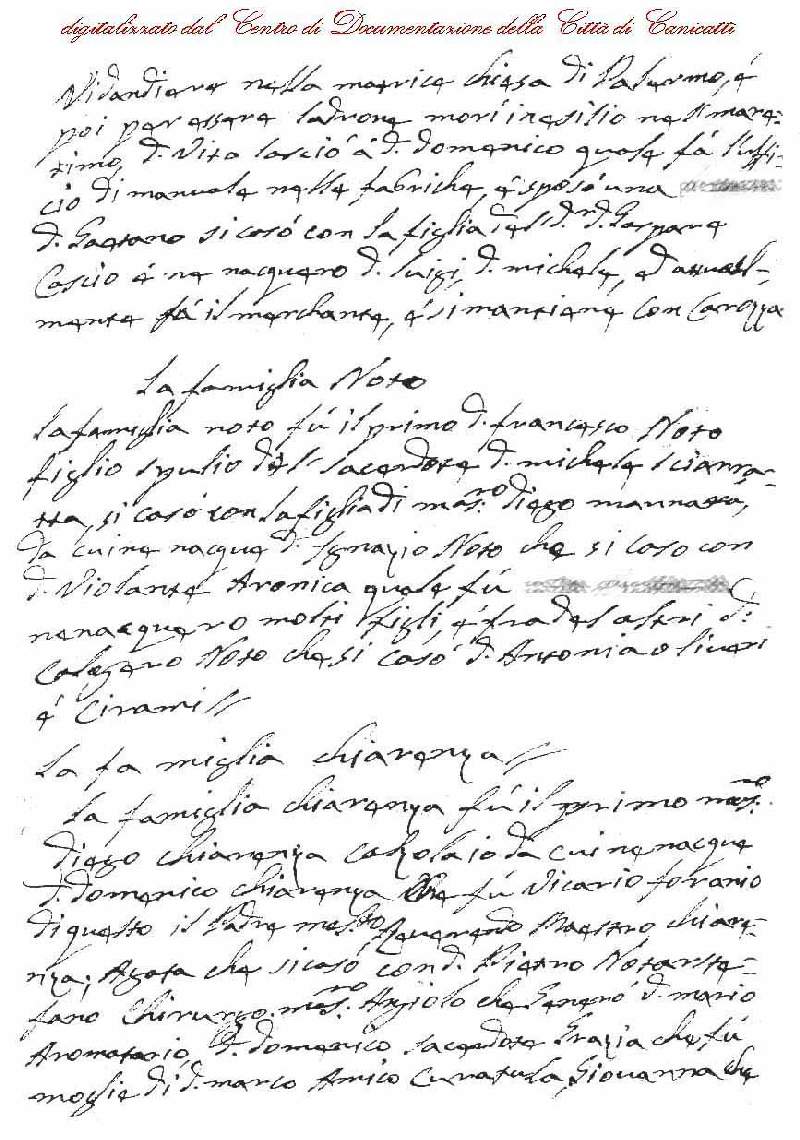 digitalizzato dal Centro di Documentazione della Città di Canicattì
Vidandiere nella maerice chiesa di Palermo, é
poi per essere ladrone morì in esilio nell mare-
timo, d. Vito lasciò á d. domenico quale fá l'uffi-
cio di manuale nelle fabriche, é sposó una
d. Gaetano si casó con la figlia dell d.r d. Gaspare
Cascio é ne nacquero d. luigi, d. michele, ed attual-
mente fá il merchante, é si mantiene con Carozza
La famiglia Noto
La famiglia noto fú il primo d. francesco Noto
figlio spulio dell sacerdote d. michele sciarra-
tta, si casó con la figlia di mas.ro diego mannara,
da cui ne nacque d. Ignazio Noto che si caso con
d. Violante Aronica quale fú
ne nacquero molti figli, é fra del altri d:
Calogero Noto che si casó d. Antonia oliveri
é Cirami //
La fa miglia chiarenza //
La famiglia chiarenza fú il primo mas.ro
diego chiarenza cahzolaio da cui ne nacque
d. domenico chiarenza che fú Vicario foranio
di questo il Padre molto Reverendo Maestro chiare-
nza; Agata che si casó con d. Pietro Notarste-
fano Chirurgo. mas.ro Angiolo che Generó d. mario
Aromatario, d. domenico sacerdote Grazia che fú
moglie di d. marco Amico Curatula, Giovanna che